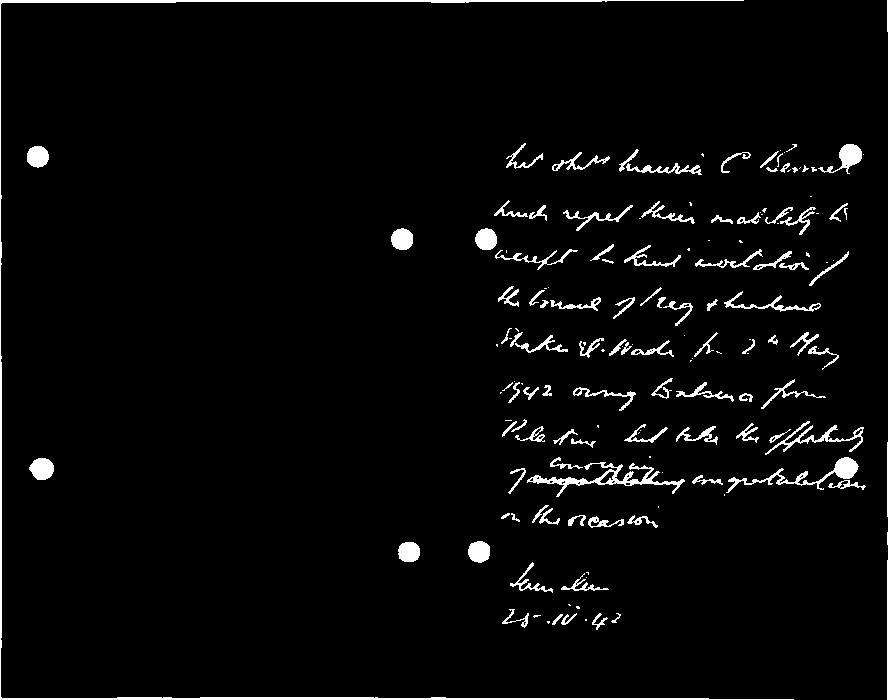 Mr & Mrs Maurice C Bennett
much regret their inability to
accept the kind invitation of
the Consul of Iraq & Madame
Shakir El-Wadi for 2nd May
1942 owing to absence from
Palestine but take the opportunity
of conveying congratulations
on the occasion
Jerusalem
25.IV.42